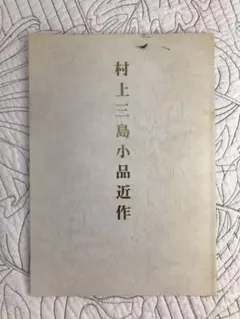 村上三島小品近作